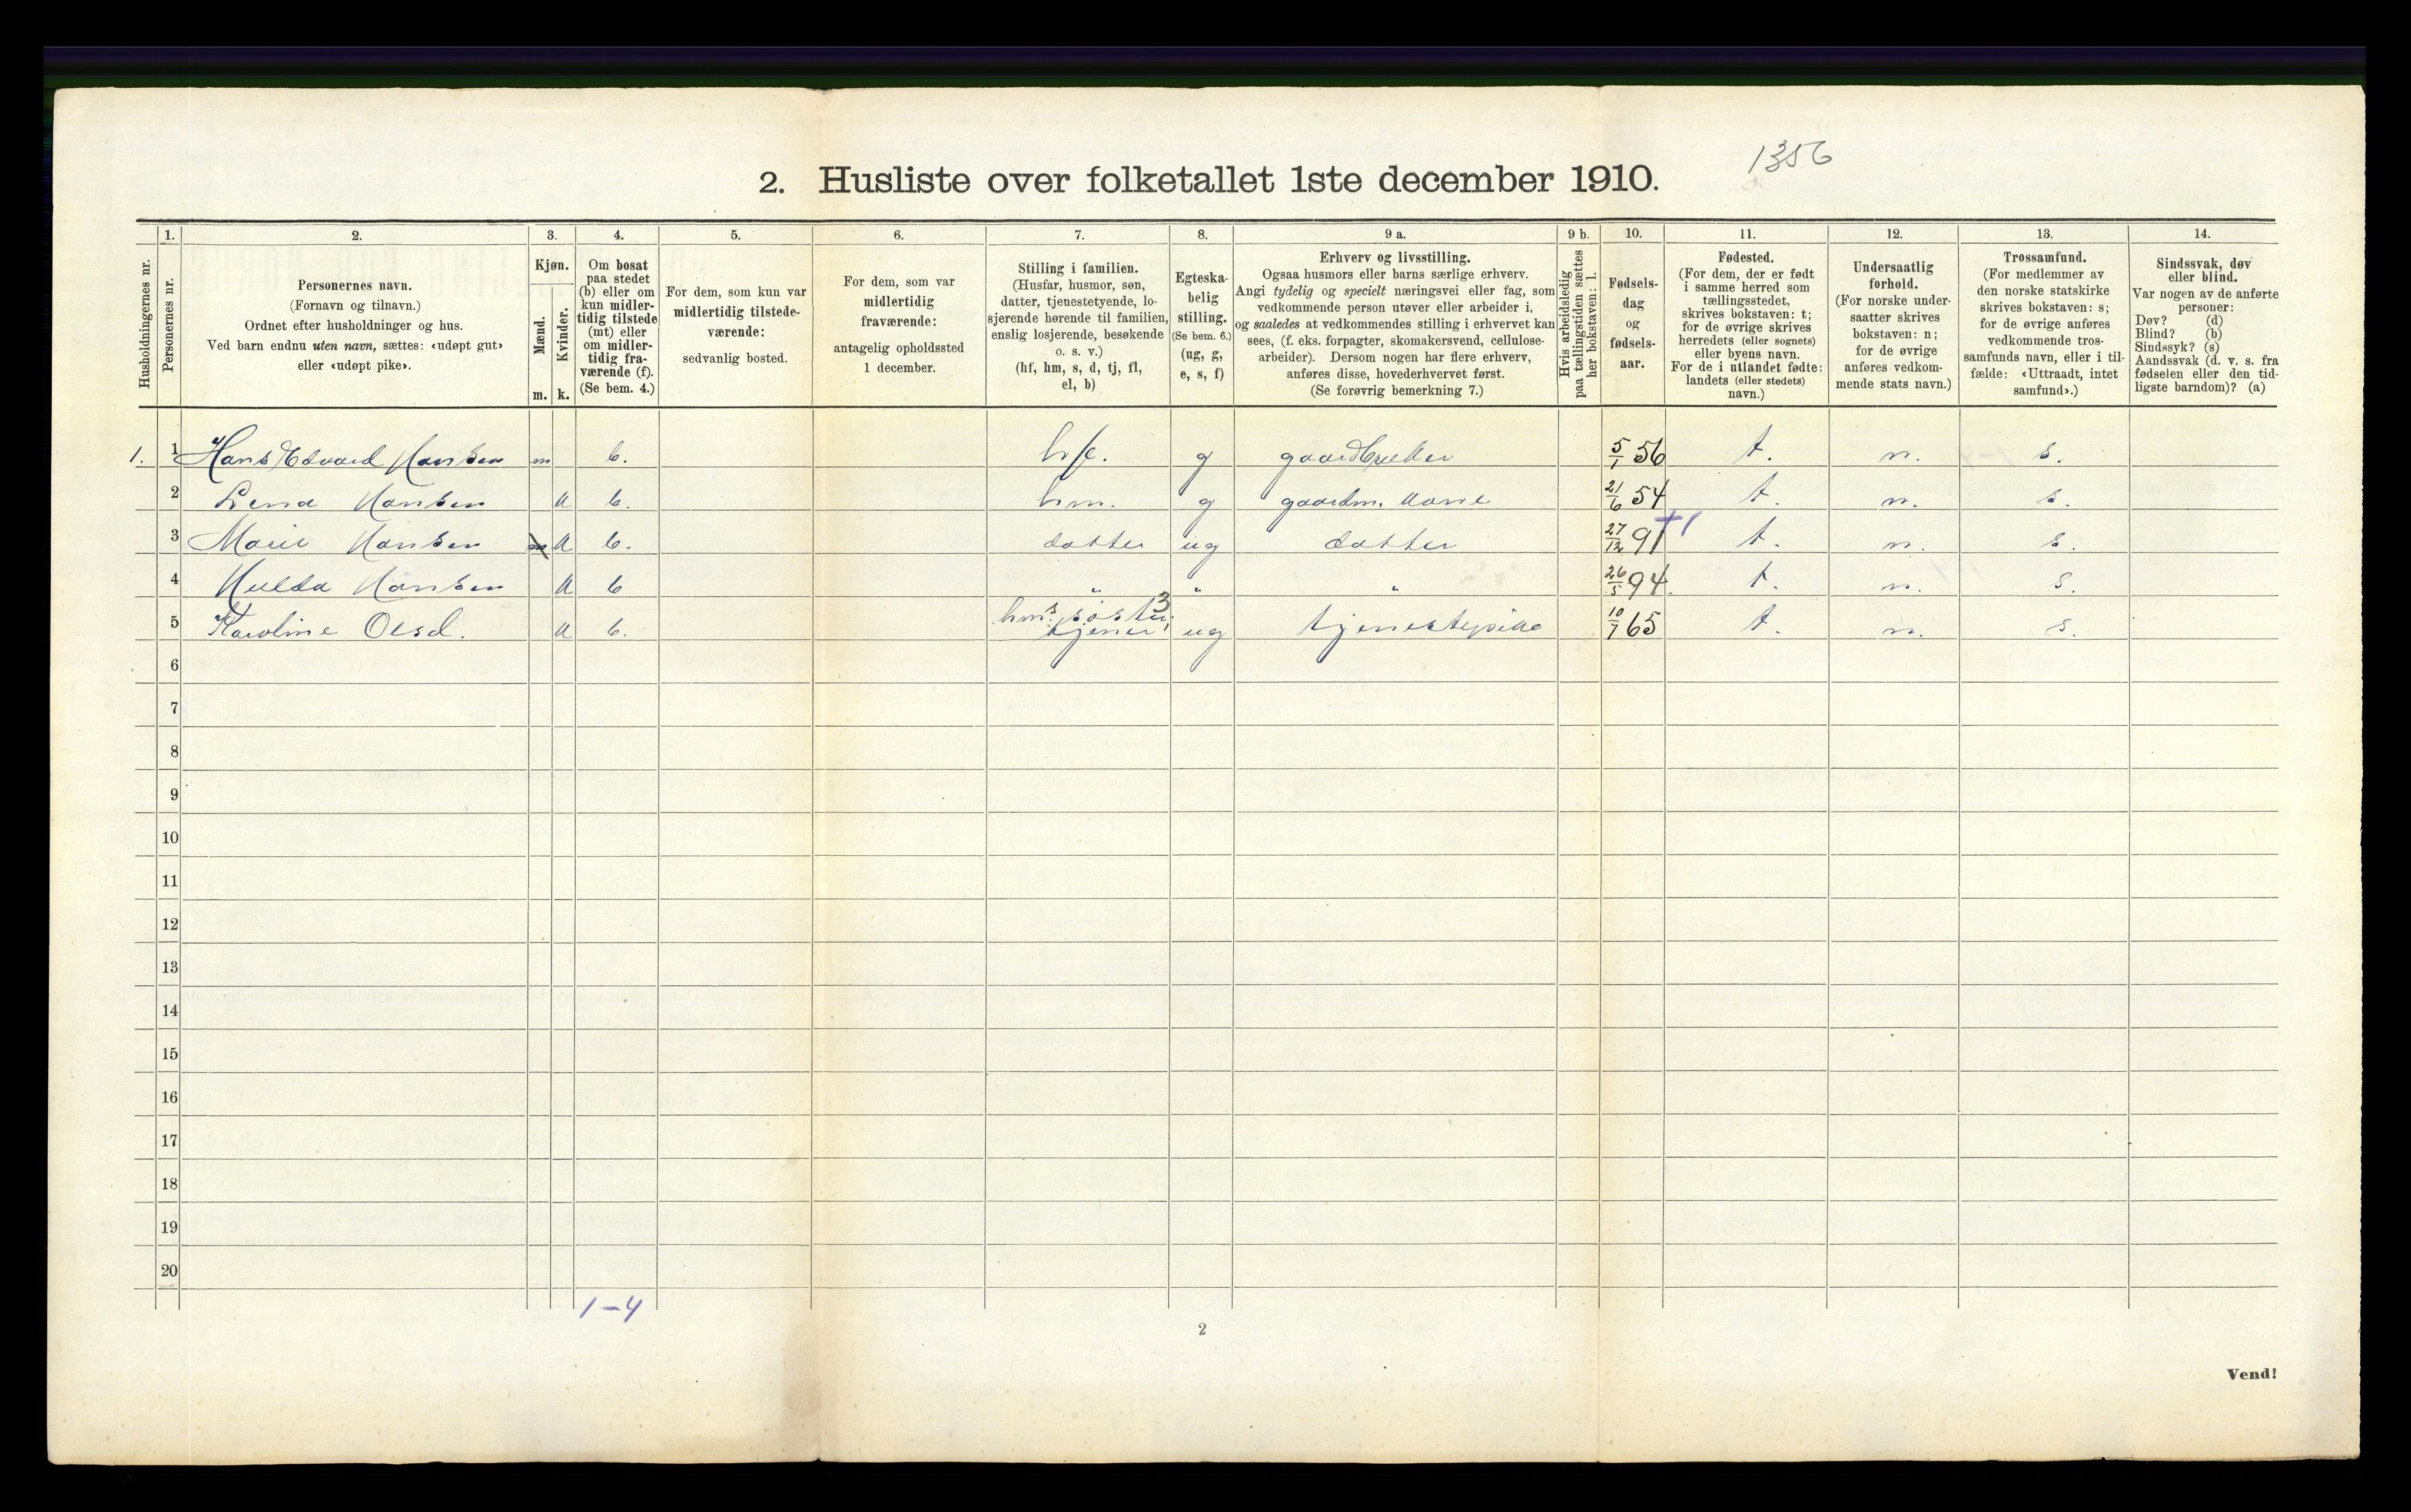 1356
2. Husliste over folketallet 1ste december 1910.
Husholdningernes nr.
1.
Personernes nr.
2.
Personernes navn.
(Fornavn og tilnavn.)
Ordnet efter husholdninger og hus.
Ved barn endnu uten navn, sættes: «udøpt gut»
eller «udøpt pike».
3.
Kjøn.
Mænd.
Kvinder.
m. k.
4.
Om bosat
paa stedet
(b) eller om
kun midler-
tidig tilstede
(mt) eller
om midler-
tidig fra-
værende (f).
(Se bem. 4.)
5.
For dem, som kun var
midlertidig tilstede-
værende:
sedvanlig bosted.
6.
For dem, som var
midlertidig
fraværende:
antagelig opholdssted
1 december.
7.
Stilling i familien.
(Husfar, husmor, søn,
datter, tjenestetyende, lo-
sjerende hørende til familien,
enslig losjerende, besøkende
o. s. v.)
(hf, hm, s, d, tj, fl,
el, b)
8.
Egteska-
belig
stilling.
(Se bem. 6.)
(ug, g,
e, s, f)
9 a.
Erhverv og livsstilling.
Ogsaa husmors eller barns særlige erhverv.
Angi tydelig og specielt næringsvei eller fag, som
vedkommende person utøver eller arbeider i,
og saaledes at vedkommendes stilling i erhvervet kan
sees, (f. eks. forpagter, skomakersvend, cellulose-
arbeider). Dersom nogen har flere erhverv,
anføres disse, hovederhvervet først.
(Se forøvrig bemerkning 7.)
9 b.
Hvis arbeidsledig
paa tællingstiden sættes
her bokstaven: l.
10.
Fødsels-
dag
og
fødsels-
aar.
11.
Fødested.
(For dem, der er født
i samme herred som
tællingsstedet,
skrives bokstaven: t;
for de øvrige skrives
herredets (eller sognets)
eller byens navn.
For de i utlandet fødte:
landets (eller stedets)
navn.)
12.
Undersaatlig
forhold.
(For norske under-
saatter skrives
bokstaven: n;
for de øvrige
anføres vedkom-
mende stats navn.)
13.
Trossamfund.
(For medlemmer av
den norske statskirke
skrives bokstaven: s;
for de øvrige anføres
vedkommende tros-
samfunds navn, eller i til-
fælde: «Uttraadt, intet
samfund».)
14.
Sindssvak, døv
eller blind.
Var nogen av de anførte
personer:
Døv? (d)
Blind? (b)
Sindssyk? (s)
Aandssvak (d. v. s. fra
fødselen eller den tid-
ligste barndom)? (a)
1. 1 Hans Edvard Hansen m b. hf. g gaardbruker 5/1 56 t. n. s.
2 Lena Hansen k b. hm. g gaardm. kone 21/6 54 t. n. s.
3 Marie Hansen m k b. datter ug datter 27/12 91 t. n. s.
4 Hulda Hansen k b " " " 26/5 94. t. n. s.
5 Karoline Olsd. k b. hms søster, tjener ug tjenestepike 10/7 65 t. n. s.
6
7
8
9
10
11
12
13
14
15
16
17
18
19
20
1-4
2
Vend!